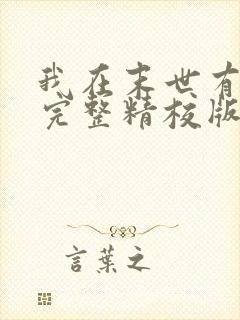 我在末世有
完整精校版
言葉之